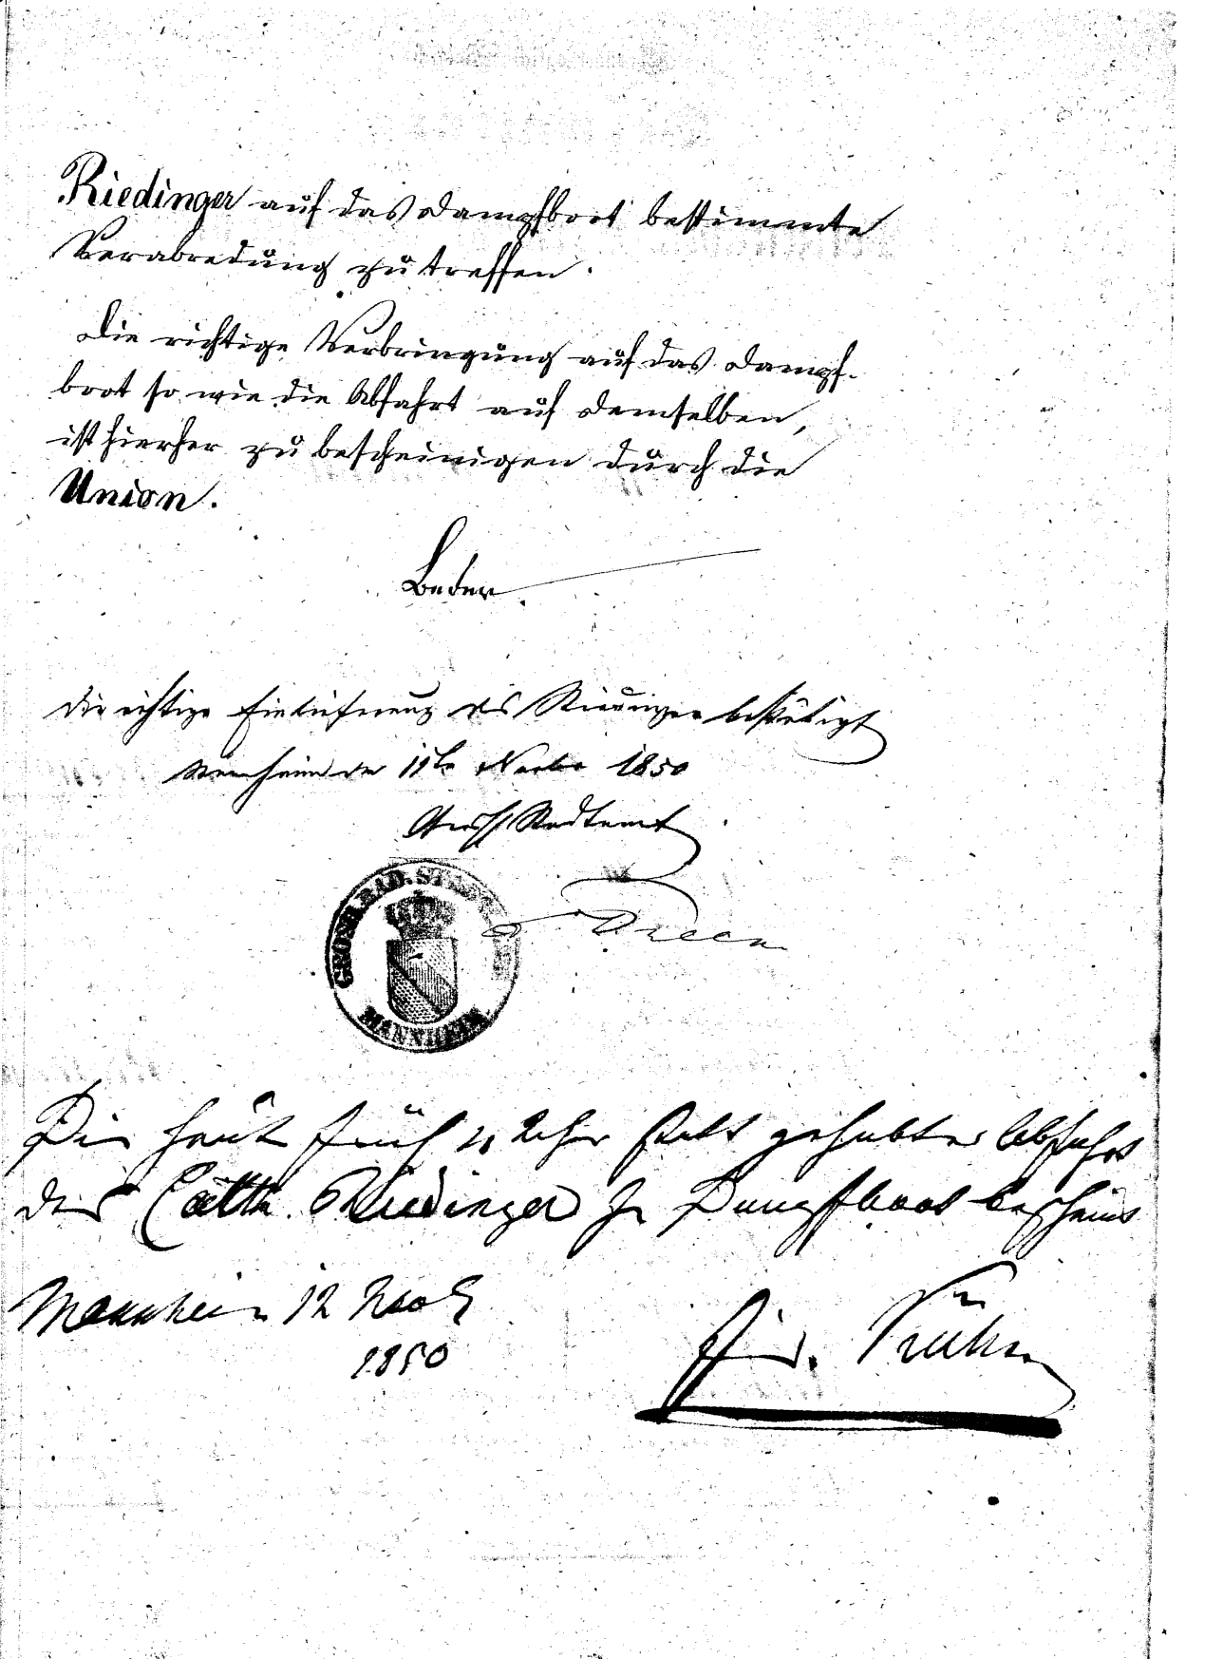 Riedinger auf das Dampfboot bestimmte
Verabredung zu treffen.
Die richtige Verbringung auf das Dampf-
boot so wie die Abfahrt auf demselben,
ist hierher zu bescheinigen durch die
Union.
Beder
Die richtige Einlieferung des Riedinger bestätigt
Mannheim den 11ten Novbr 1850
Großh Stadtamt
GROSH. BAD. STADT
MANNHEIM
Die heute früh Uhr statt gehabte Abfahrt
des Cath. Riedinger Dampfboot bescheint
Mannheim 12 Novb
1850